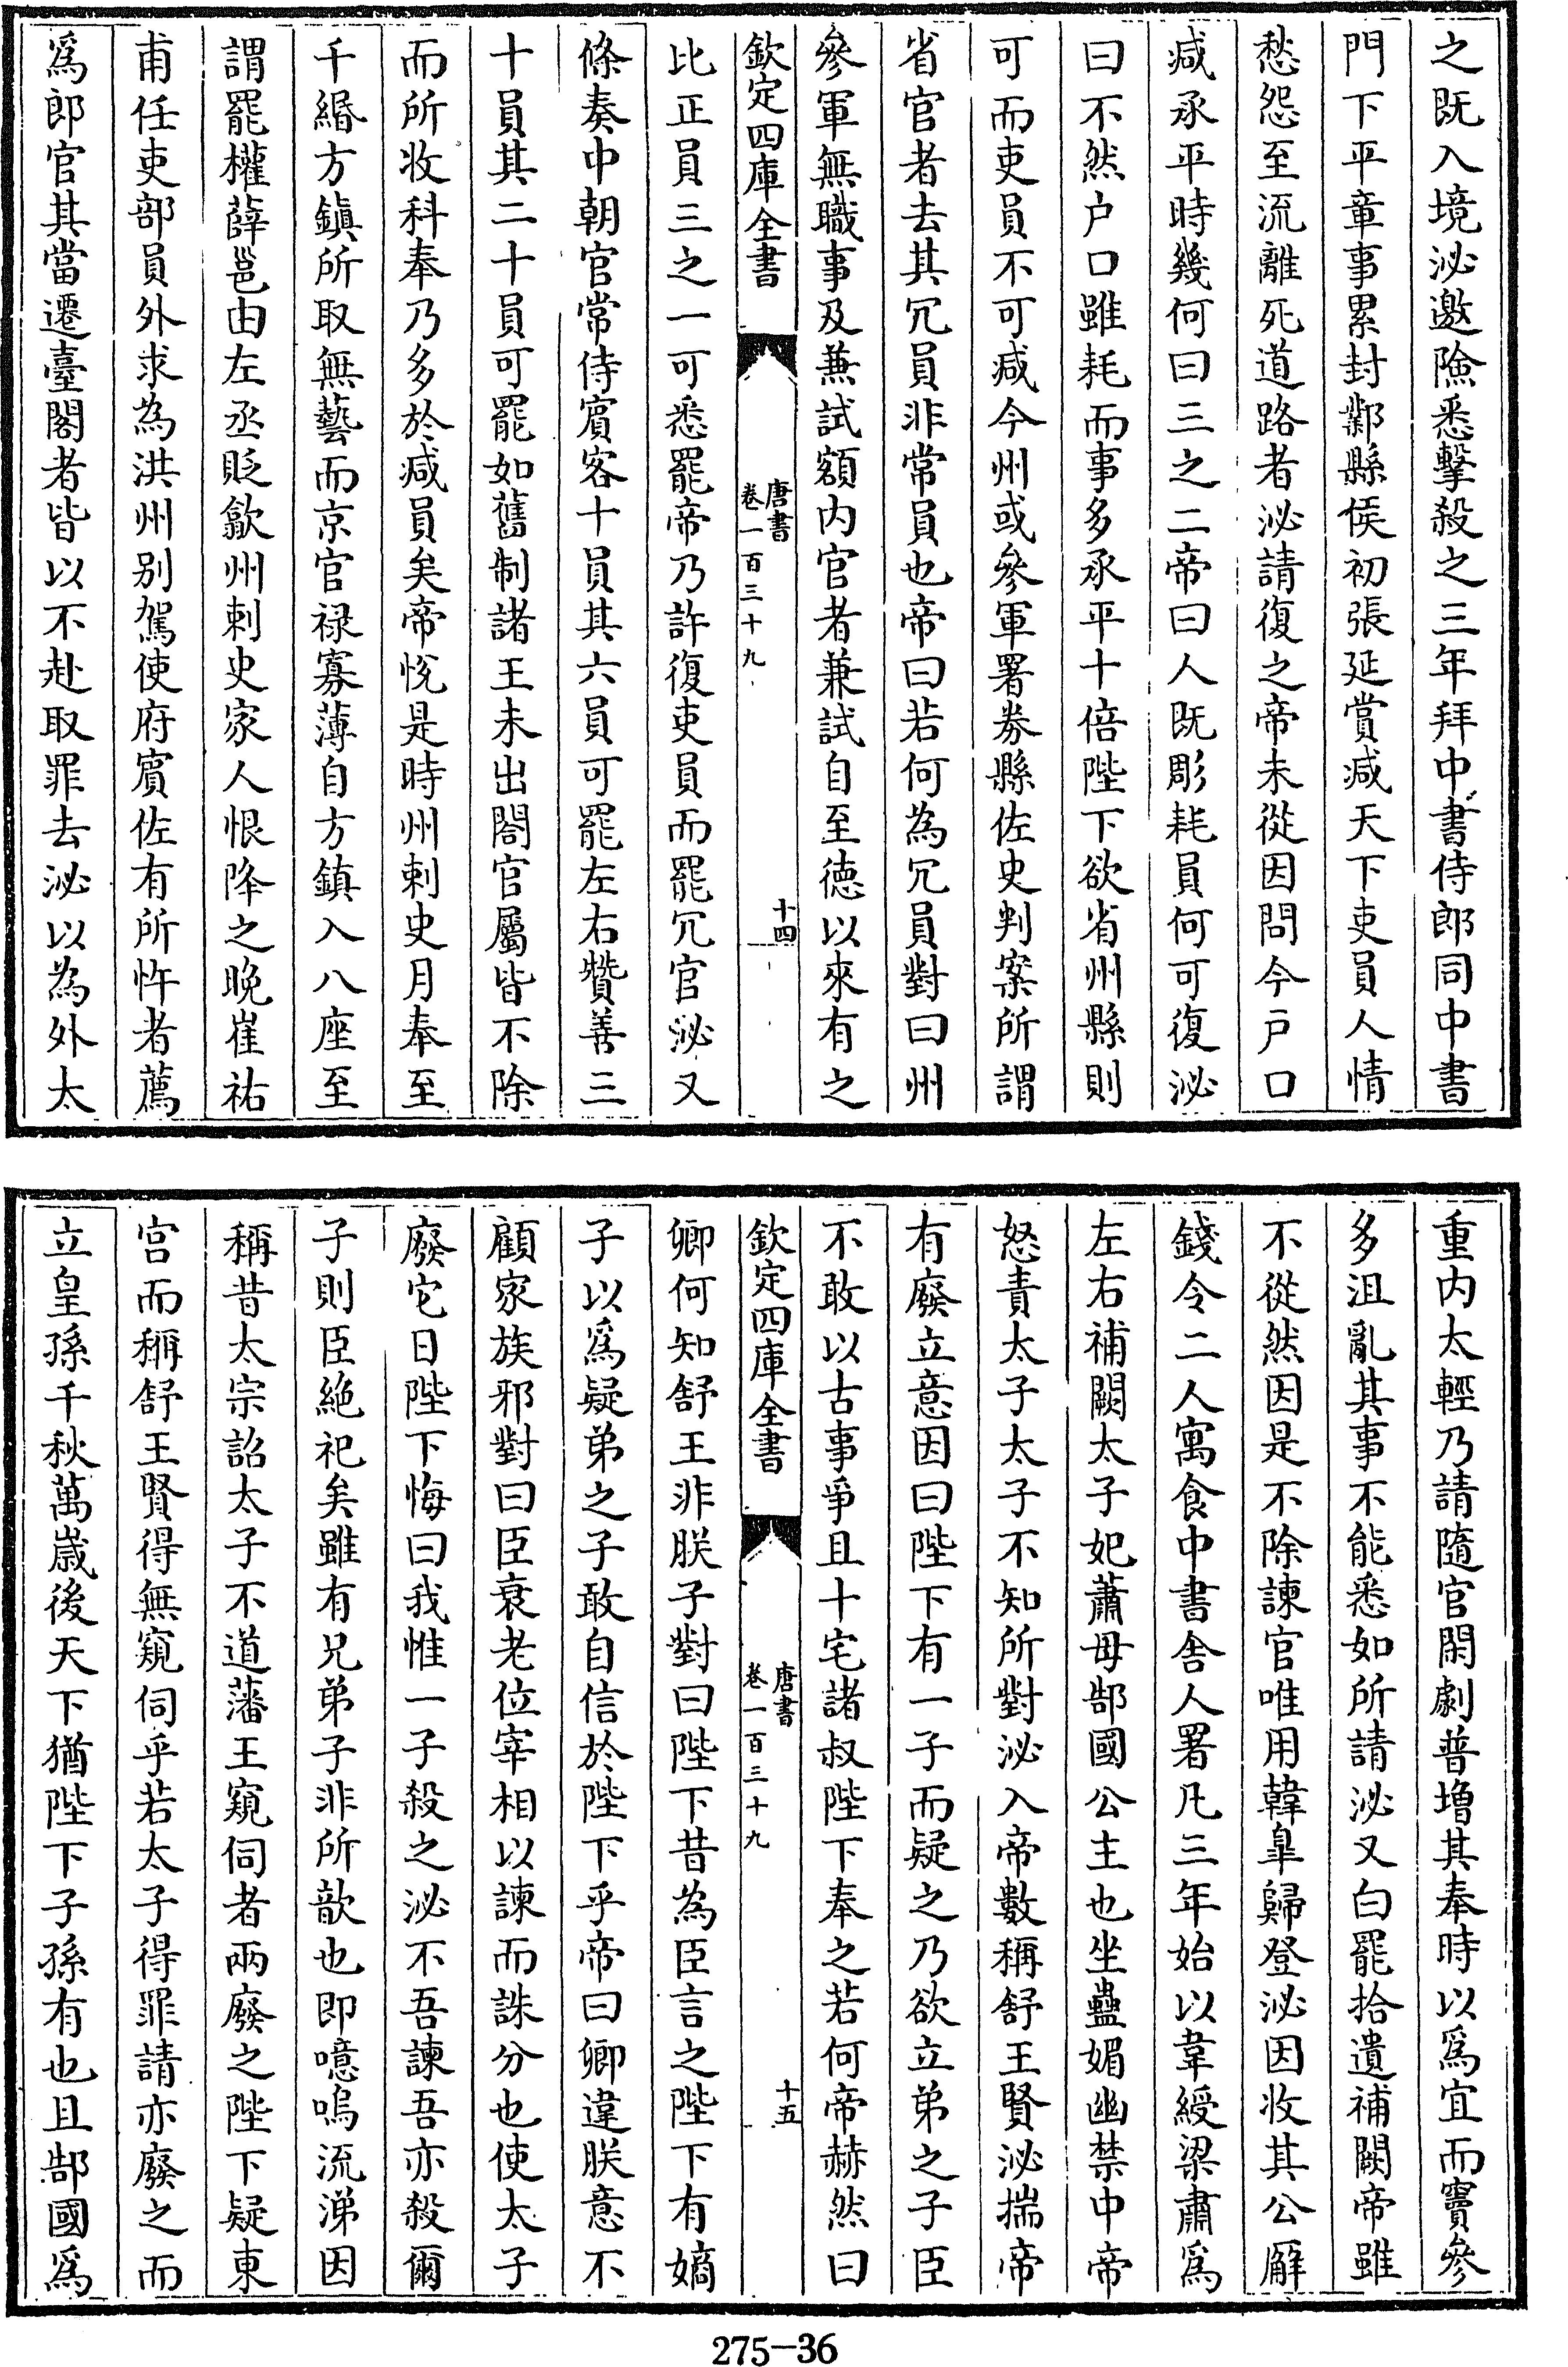 之既入境泌邀險悉擊殺之三年拜中書侍郎同中書
門下平章事累封鄴縣侯初張延賞減天下吏員人情
愁怨至流離死道路者泌請復之帝未從因問今戶口
減承平時幾何曰三之二帝曰人既彫耗員何可復泌
曰不然户口雖耗而事多承平十倍陛下欲省州縣則
可而吏員不可減今州或參軍署劵縣佐史判案所謂
省官者去其冗員非常員也帝曰若何為冗員對曰州
參軍無職事及兼試額内官者兼試自至徳以來有之
欽定四庫全書
唐書
卷一百三十九
十四
比正員三之一可悉罷帝乃許復吏員而罷冗官泌又
條奏中朝官常侍賓客十員其六員可罷左右贊善三
十員其二十員可罷如舊制諸王未出閤官屬皆不除
而所收科奉乃多於減員矣帝悅是時州刺史月奉至
千緡方鎮所取無藝而京官禄寡薄自方鎮入八座至
謂罷權薛邕由左丞貶歙州刺史家人恨降之晚崔祐
甫任吏部員外求為洪州别駕使府賓佐有所忤者薦
爲郎官其當遷臺閣者皆以不赴取罪去泌以為外太
重内太輕乃請隨官閑劇普増其奉時以爲宜而竇參
多沮亂其事不能悉如所請泌又白罷拾遺補闕帝雖
不從然因是不除諫官唯用韓臯歸登泌因收其公廨
錢令二人寓食中書舍人署凡三年始以韋綬梁肅爲
左右補闕太子妃蕭母郜國公主也坐蠱媚幽禁中帝
怒責太子太子不知所對泌入帝數稱舒王賢泌揣帝
有廢立意因曰陛下有一子而疑之乃欲立弟之子臣
不敢以古事爭且十宅諸叔陛下奉之若何帝赫然曰
欽定四庫全書
唐書
卷一百三十九
十五
卿何知舒王非朕子對曰陛下昔為臣言之陛下有嫡
子以爲疑弟之子敢自信於陛下乎帝曰卿違朕意不
顧家族邪對曰臣衰老位宰相以諫而誅分也使太子
廢它日陛下悔曰我惟一子殺之泌不吾諫吾亦殺爾
子則臣絶祀矣雖有兄弟子非所歆也即噫嗚流涕因
稱昔太宗詔太子不道藩王窺伺者兩廢之陛下疑東
宫而稱舒王賢得無窺伺乎若太子得罪請亦廢之而
立皇孫千秋萬歲後天下猶陛下子孫有也且郜國爲
275-36